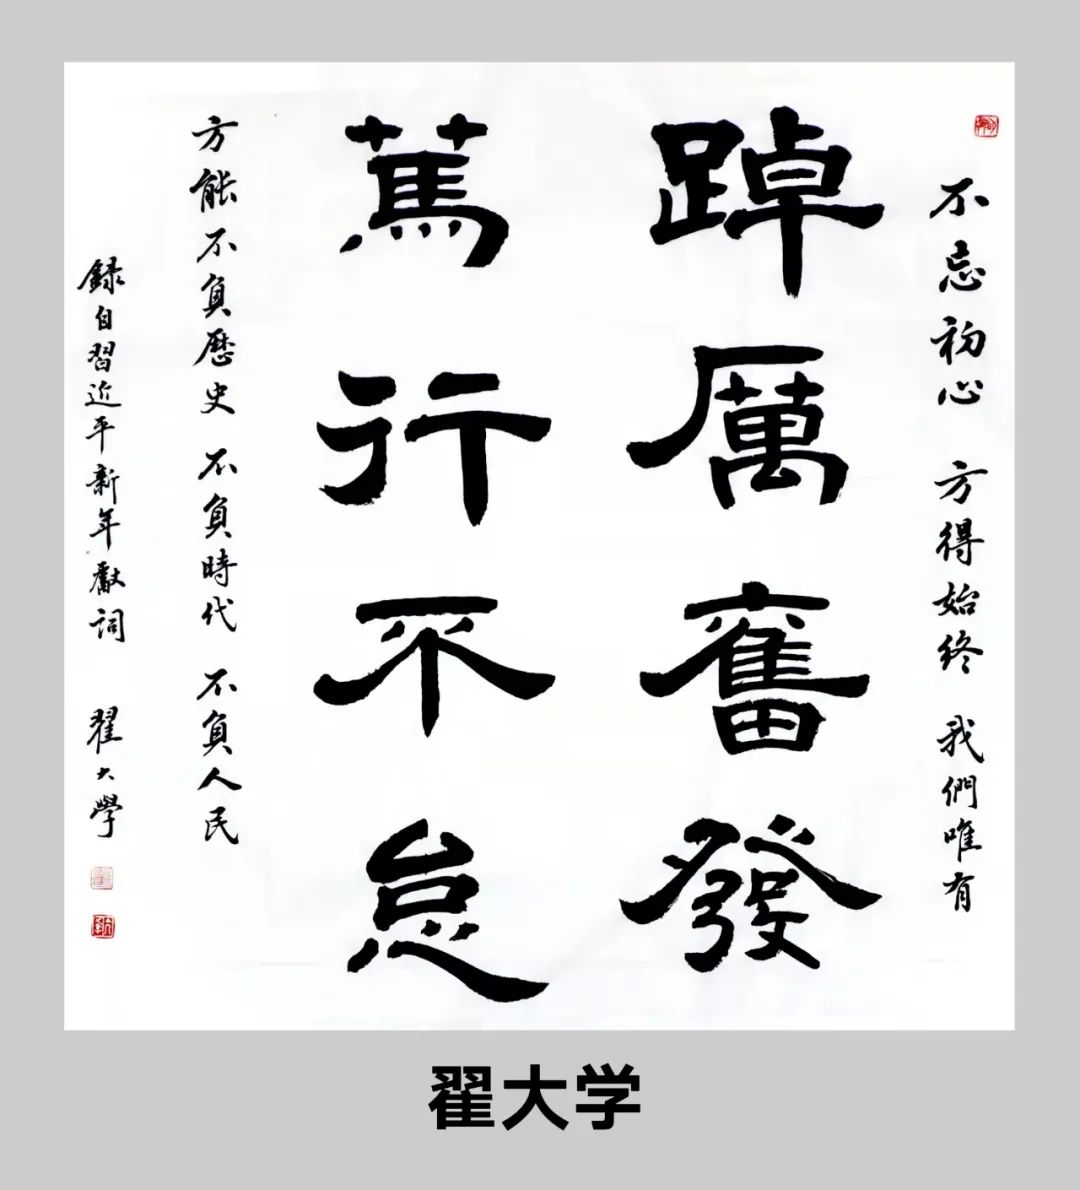 不忘初心 方得始终 我們唯有
踔厲奮發
篤行不怠
方能不負歷史 不負時代 不負人民
録自習近平新年獻詞 翟大學
翟大学